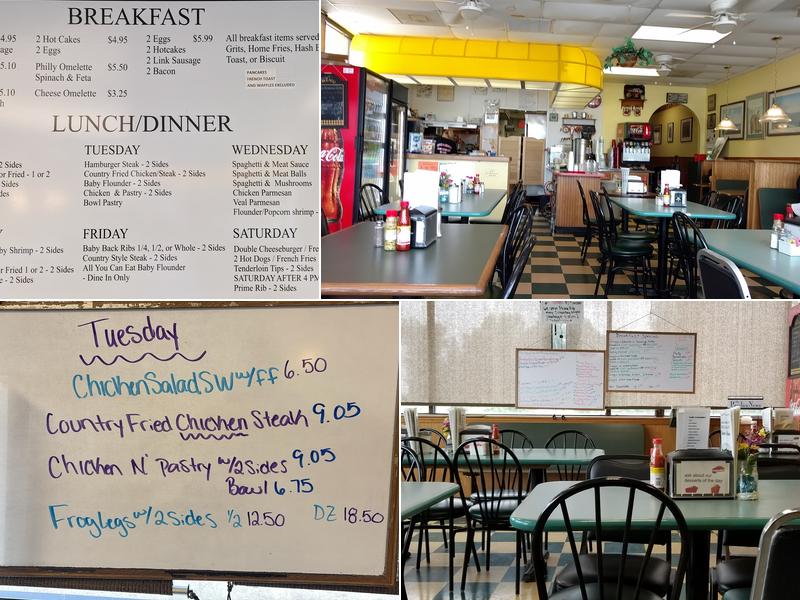 BREAKFAST
4.95
age
5.10
5.10
h
2 Hot Cakes $4.95
2 Eggs
Philly Omelette $5.50
Spinach & Feta
Cheese Omelette $3.25
2 Eggs $5.99
2 Hotcakes
2 Link Sausage
2 Bacon
All breakfast items served
Grits, Home Fries, Hash B
Toast, or Biscuit
PANCAKES
FRENCH TOAST
AND WAFFLES EXCLUDED
LUNCH/DINNER
2 Sides
or Fried - 1 or 2
ides
des
TUESDAY
Hamburger Steak - 2 Sides
Country Fried Chicken/Steak - 2 Sides
Baby Flounder - 2 Sides
Chicken & Pastry - 2 Sides
Bowl Pastry
WEDNESDAY
Spaghetti & Meat Sauce
Spaghetti & Meat Balls
Spaghetti & Mushrooms
Chicken Parmesan
Veal Parmesan
Flounder/Popcorn shrimp -
Y
by Shrimp - 2 Sides
r Fried 1 or 2 - 2 Sides
e - 2 Sides
FRIDAY
Baby Back Ribs 1/4, 1/2, or Whole - 2 Sides
Country Style Steak - 2 Sides
All You Can Eat Baby Flounder
- Dine In Only
SATURDAY
Double Cheeseburger / Fre
2 Hot Dogs / French Fries
Tenderloin Tips - 2 Sides
SATURDAY AFTER 4 PM
Prime Rib - 2 Sides
Coca-Cola
Tuesday
Chicken Salad SW w/FF 6.50
Country Fried Chicken Steak 9.05
Chicken N' Pastry w/2Sides 9.05
Bowl 6.75
Froglegs w/2 Sides 1/2 12.50 DZ 18.50
ask about our
desserts of the day